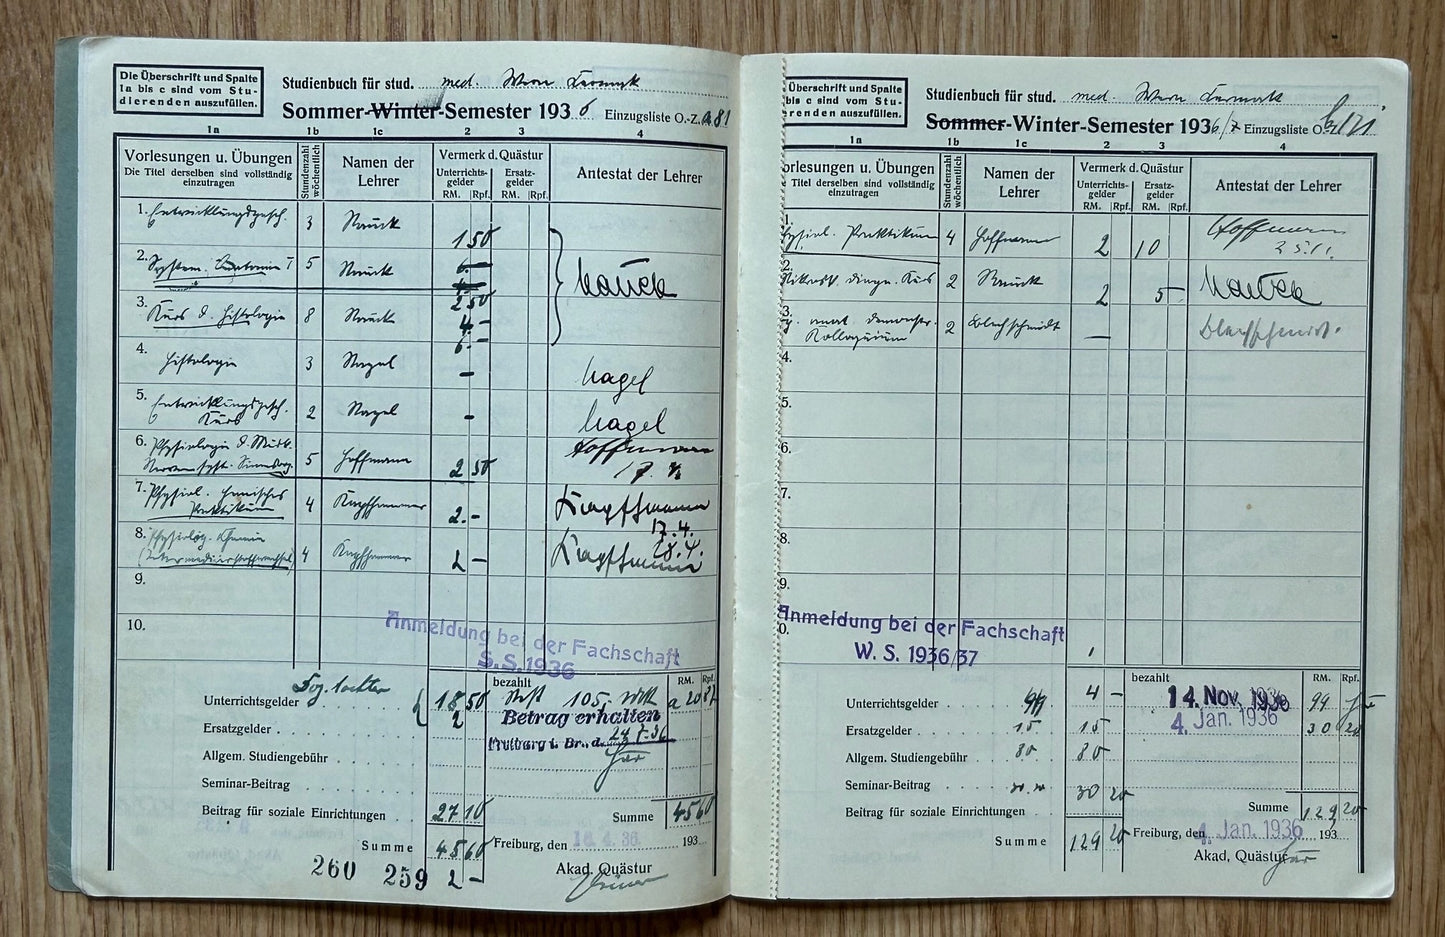 Die Überschrift und Spalte
1a bis c sind vom Stu-
dierenden auszufüllen.
Studienbuch für stud. med.
Sommer-Winter-Semester 1936 Einzugsliste O.-Z. a 81
1a 1b 1c 2 3 4
Vorlesungen u. Übungen
Die Titel derselben sind vollständig
einzutragen
Stundenzahl
wöchentlich
Namen der
Lehrer
Vermerk d. Quästur
Unterrichts-
gelder
RM. Rpf.
Ersatz-
gelder
RM. Rpf.
Antestat der Lehrer
1. Entwicklungsgesch. 3 Nauck 1 50
2. System. Anatomie I 5 Nauck
Nauck
3. Kurs d. Histologie 8 Nauck 2 50
4 -
6 -
4. Histologie 3 Nagel - Nagel
5. Entwicklungsgesch.
Kurs 2 Nagel - Nagel
6. Physiologie d. Musk.
Nervensyst. Sinnesorg. 5 Hoffmann 2 50 Hoffmann
7. Physiol. chemisches
Praktikum 4 Kapfhammer 2 - Kapfhammer
17.4.
8. Physiolog. Chemie
(Intermediärstoffwechsel) 4 Kapfhammer 2 - Kapfhammer
28.4.
9.
10.
Anmeldung bei der Fachschaft
S. S. 1936
Unterrichtsgelder 18 50
Ersatzgelder 2
Allgem. Studiengebühr
Seminar-Beitrag
Beitrag für soziale Einrichtungen 27 10
Summe 45 60
2 -
260 259
bezahlt RM. Rpf.
105,
Betrag erhalten
Freiburg i. Br., d.
Summe 45 60
Freiburg, den 16.4.36. 193
Akad. Quästur
Überschrift und Spalte
bis c sind vom Stu-
erenden auszufüllen.
Studienbuch für stud. med.
Sommer-Winter-Semester 1936/7 Einzugsliste O.-Z. b 171
1a 1b 1c 2 3 4
orlesungen u. Übungen
Titel derselben sind vollständig
einzutragen
Stundenzahl
wöchentlich
Namen der
Lehrer
Vermerk d. Quästur
Unterrichts-
gelder
RM. Rpf.
Ersatz-
gelder
RM. Rpf.
Antestat der Lehrer
1.
Physiol. Praktikum 4 Hoffmann 2 10 Hoffmann
2.
Mikrosk. diagn. Kurs 2 Nauck 2 5 - Nauck
3.
Kolloquium 2 Blechschmidt - Blechschmidt
4.
5.
6.
7.
8.
9.
0.
Anmeldung bei der Fachschaft
W. S. 1936/37
Unterrichtsgelder 4 -
Ersatzgelder 15 15
Allgem. Studiengebühr 80 80
Seminar-Beitrag
Beitrag für soziale Einrichtungen 30 20
Summe 129 20
bezahlt RM. Rpf.
14. Nov. 1936 99
4. Jan. 1936 30 20
Summe 129 20
Freiburg, den 4. Jan. 1936 193
Akad. Quästur